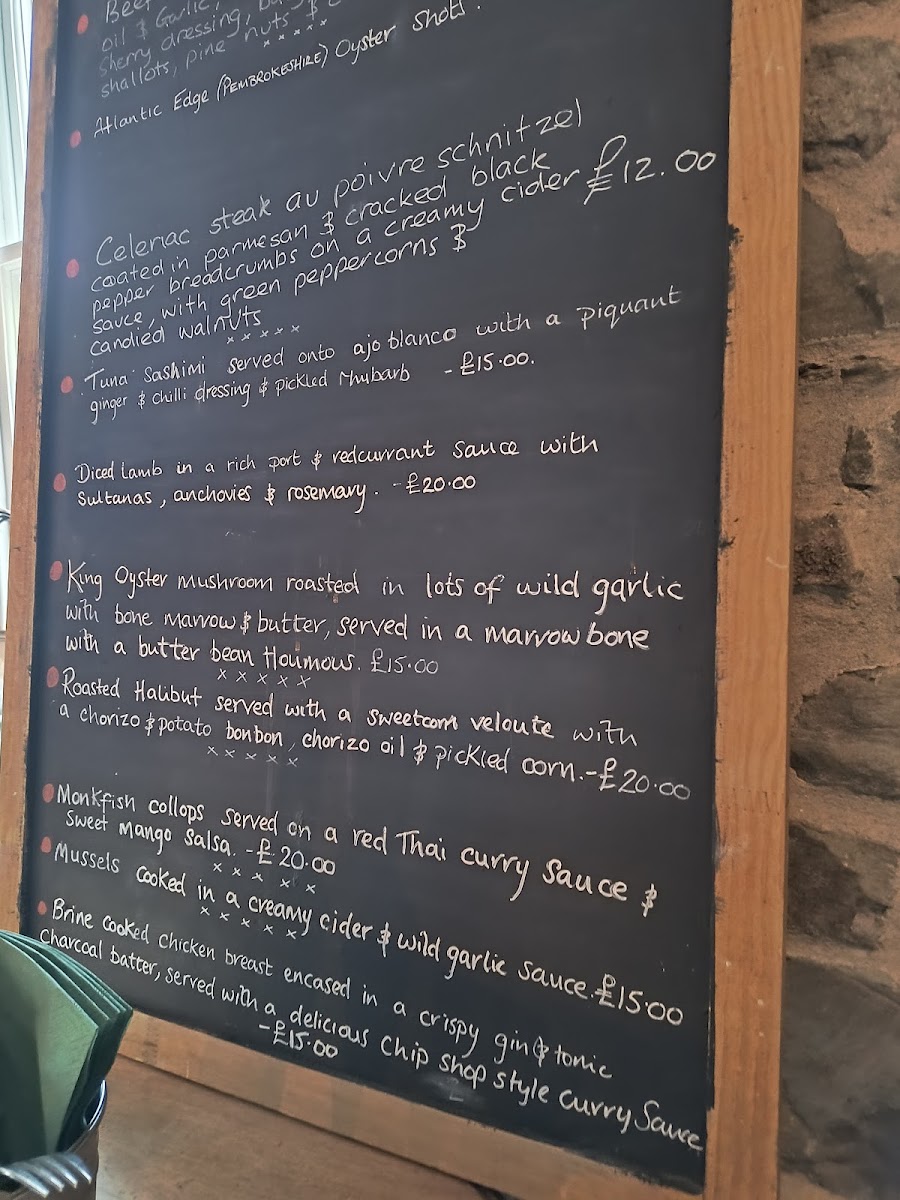 Beef
oil & Garlic,
sherry dressing,
shallots, pine nuts &
x x x x
Atlantic Edge (PEMBROKESHIRE) Oyster Shots.
Celeriac steak au poivre schnitzel
coated in parmesan & cracked black
pepper breadcrumbs on a creamy cider £12.00
sauce, with green peppercorns &
candied walnuts
x x x x x
Tuna Sashimi served onto ajo blanco with a piquant
ginger & chilli dressing & pickled rhubarb - £15.00.
Diced Lamb in a rich port & redcurrant sauce with
Sultanas, anchovies & rosemary. - £20.00
King Oyster mushroom roasted in lots of wild garlic
with bone marrow & butter, served in a marrowbone
with a butter bean Houmous. £15.00
x x x x x
Roasted Halibut served with a sweetcorn veloute with
a chorizo & potato bonbon, chorizo oil & pickled corn. - £20.00
x x x x x
Monkfish collops served on a red Thai curry sauce &
sweet mango salsa. - £20.00
x x x x x
Mussels cooked in a creamy cider & wild garlic sauce. £15.00
x x x x x
Brine cooked chicken breast encased in a crispy gin & tonic
charcoal batter, served with a delicious chip shop style curry sauce
- £15.00